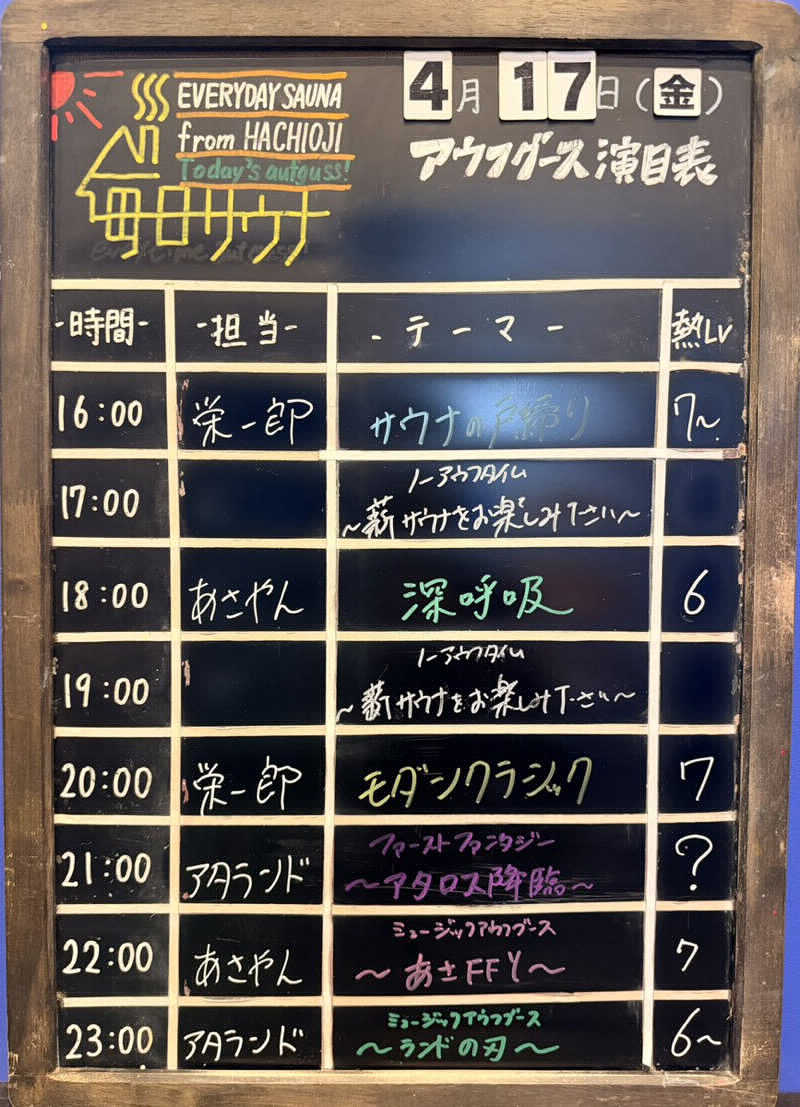 EVERYDAY SAUNA
from HACHIOJI
Today's aufguss!
毎日サウナ
4月17日(金)
アウフグース演目表
-時間- -担当- -テーマ- 熱LV
16:00 栄一郎 サウナの戸締り 7~
17:00 ノーアウフタイム
~薪サウナをお楽しみ下さい~
18:00 あさやん 深呼吸 6
19:00 ノーアウフタイム
~薪サウナをお楽しみ下さい~
20:00 栄一郎 モダンクラシック 7
21:00 アタランド ファーストファンタジー ?
~アタロス降臨~
22:00 あさやん ミュージックアウフグース 7
~あさFFY~
23:00 アタランド ミュージックアウフグース 6~
~ランドの刃~